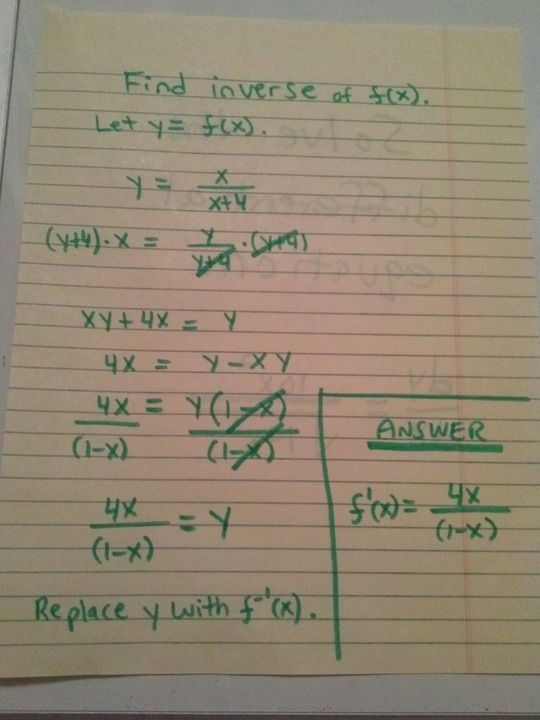 Find inverse of f(x).
Let y = f(x).
y = x/(x+4)
(y+4)·x = y/(y+4)·(y+4)
xy + 4x = y
4x = y - xy
4x/(1-x) = y(1-x)/(1-x)
4x/(1-x) = y
Replace y with f⁻¹(x).
ANSWER
f⁻¹(x) = 4x/(1-x)